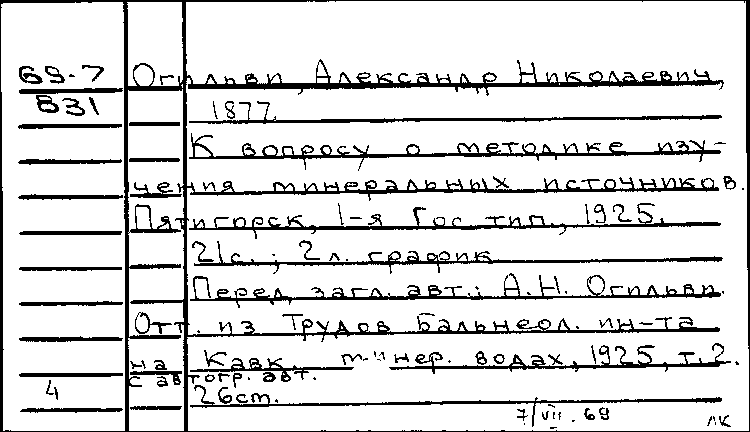 69-7 Огильви, Александр Николаевич,
831 1877.
К вопросу о методике изу-
чения минеральных источников.
Пятигорск, 1-я Гос. тип., 1925.
21с.; 2 л. график
Перед загл. авт.: А.Н. Огильви.
Отт. из Трудов Бальнеол. ин-та
на Кавк. минер. водах, 1925, т. 2.
С автогр. авт.
4 26cm.
7/VII.69 ЛК